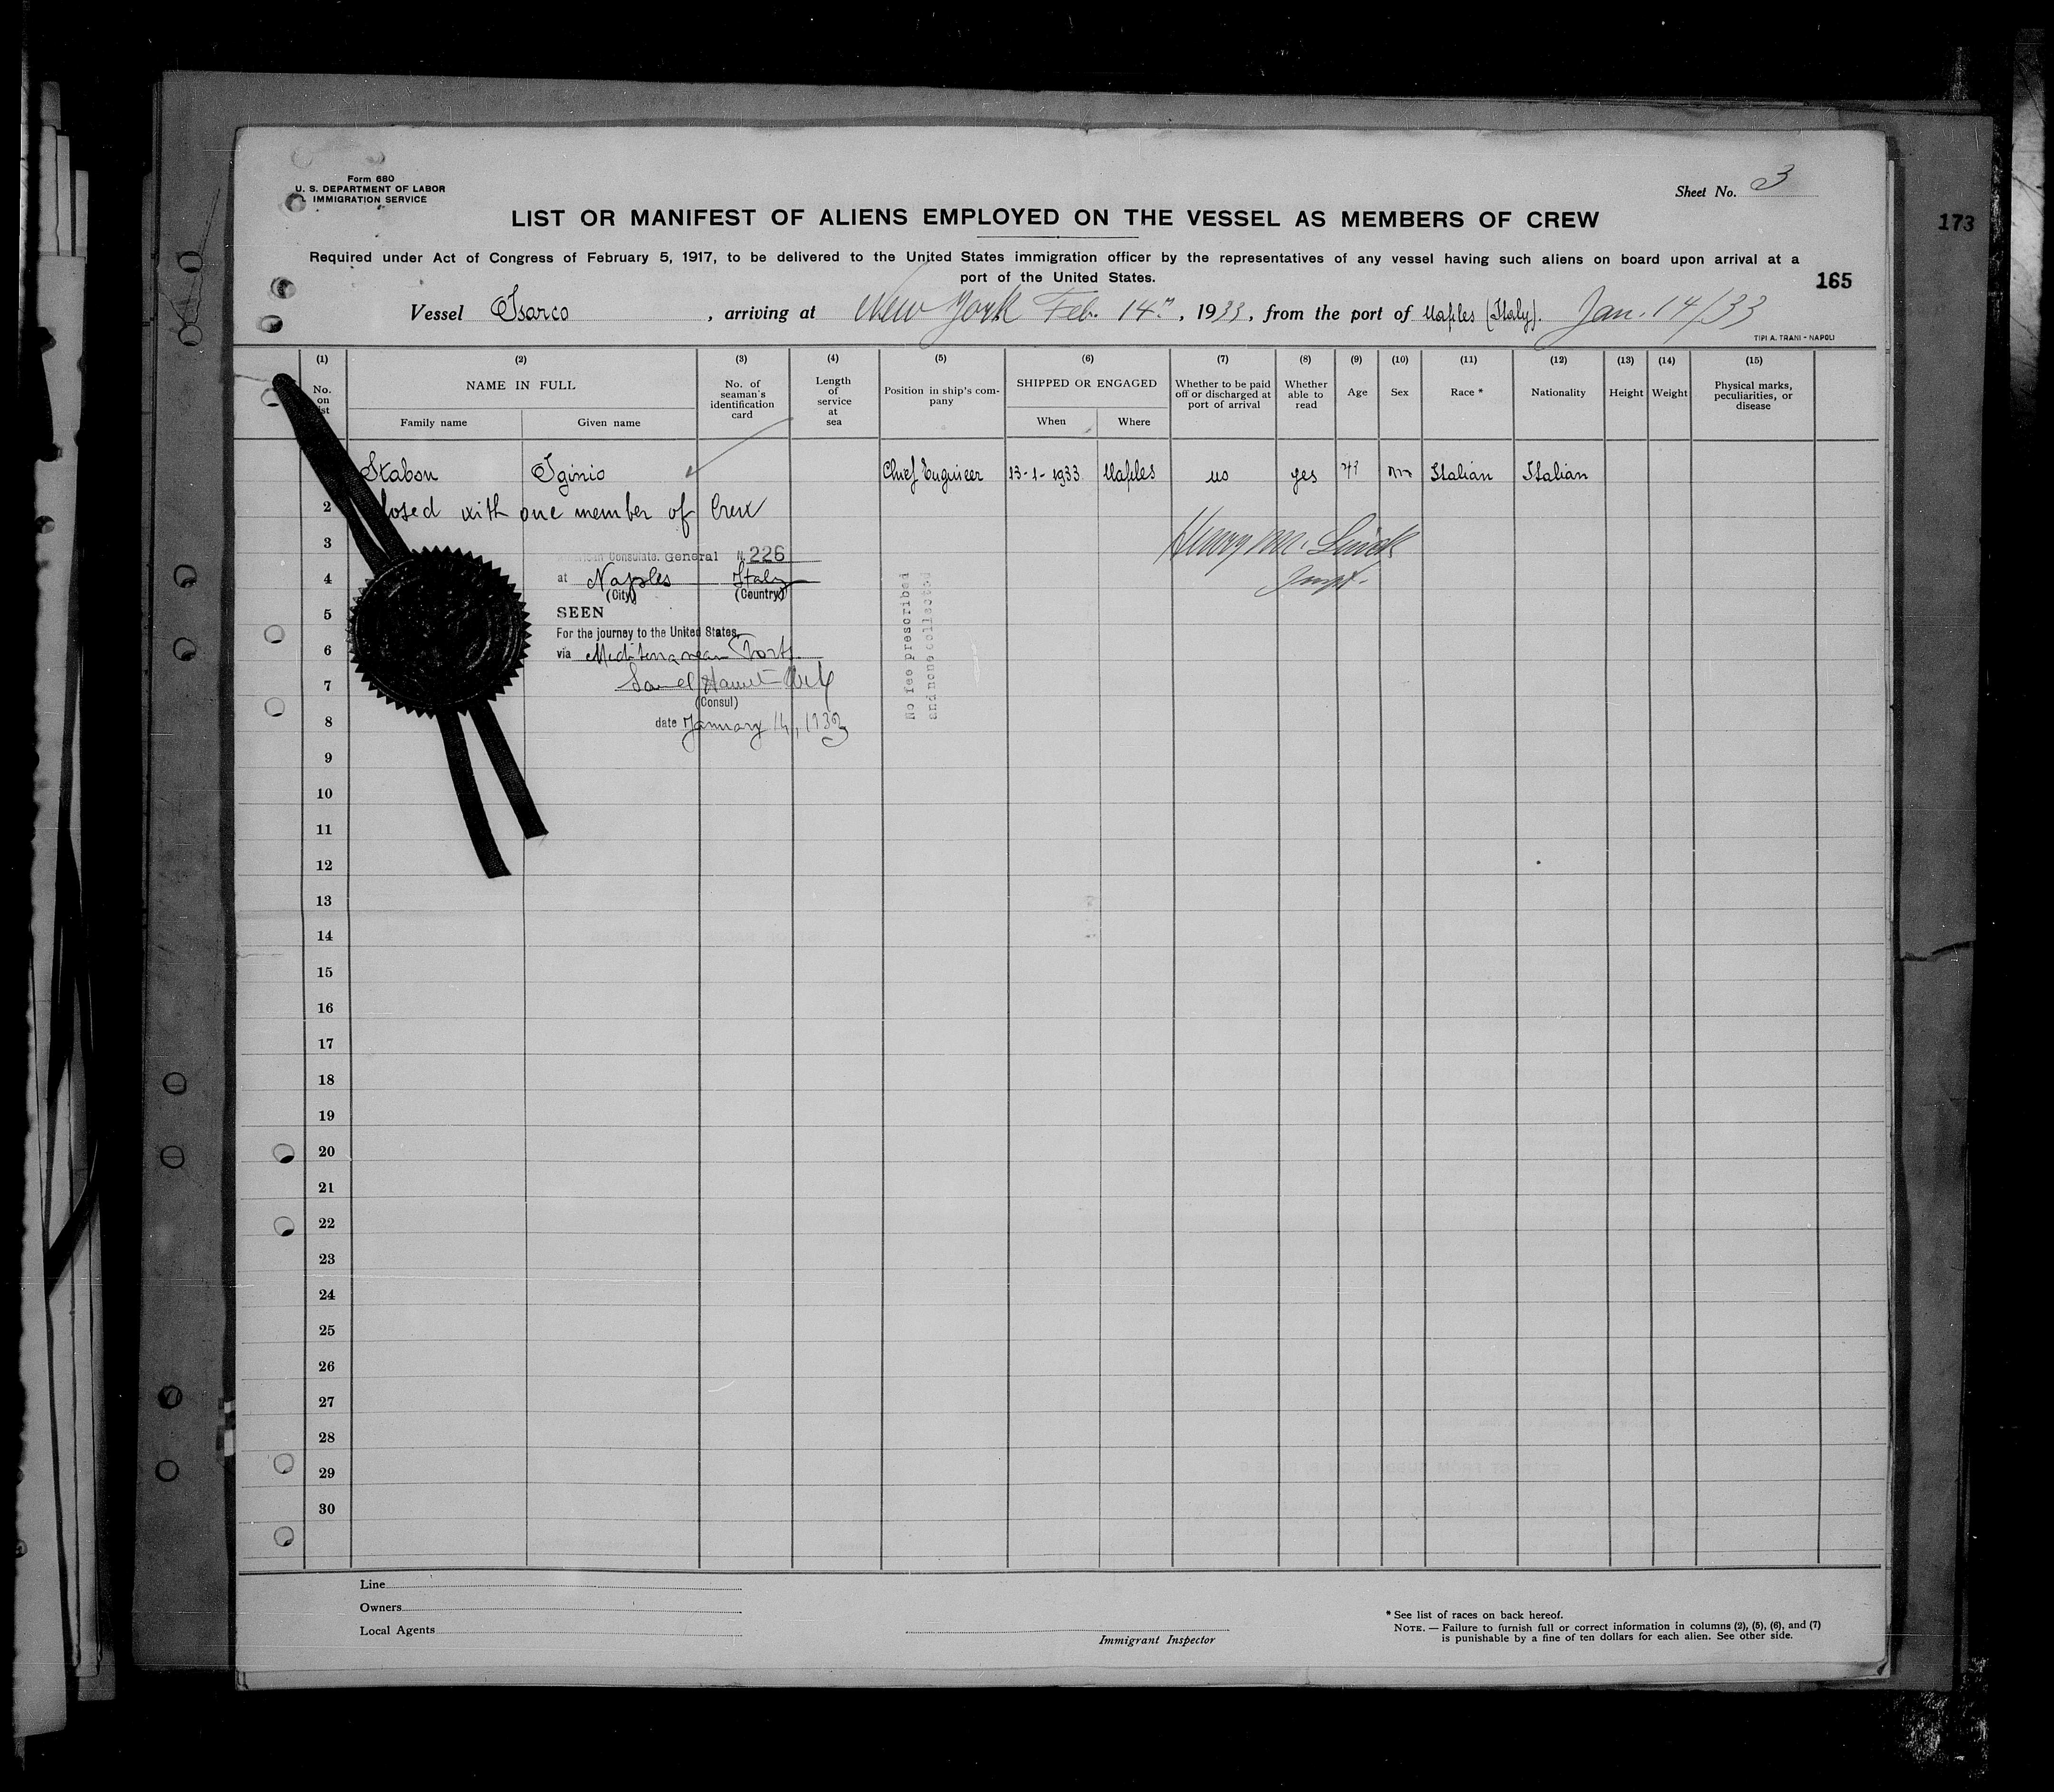 Form 680
U. S. DEPARTMENT OF LABOR
IMMIGRATION SERVICE
Sheet No. 3
LIST OR MANIFEST OF ALIENS EMPLOYED ON THE VESSEL AS MEMBERS OF CREW
173
Required under Act of Congress of February 5, 1917, to be delivered to the United States immigration officer by the representatives of any vessel having such aliens on board upon arrival at a
port of the United States.
165
Vessel Isarco , arriving at New York Feb. 14th , 1933, from the port of Naples (Italy). Jan. 14/33
TIPI A. TRANI - NAPOLI
(1) (2) (3) (4) (5) (6) (7) (8) (9) (10) (11) (12) (13) (14) (15)
No. on list
NAME IN FULL
Family name
Given name
No. of seaman's identification card
Length of service at sea
Position in ship's company
SHIPPED OR ENGAGED
When
Where
Whether to be paid off or discharged at port of arrival
Whether able to read
Age
Sex
Race *
Nationality
Height
Weight
Physical marks, peculiarities, or disease
Stabon Iginio Chief Engineer 13-1-1933 Naples no yes m Italian Italian
2 losed with one member of Crew
3
Henry M.
Inspt.
General N. 226
4
at Naples Italy
(City) (Country)
5
SEEN
For the journey to the United States,
6
via Mediterranean Ports
7
(Consul)
8
date January 14, 1933
No fee prescribed
and none collected
9
10
11
12
13
14
15
16
17
18
19
20
21
22
23
24
25
26
27
28
29
30
Line
Owners
Local Agents
Immigrant Inspector
* See list of races on back hereof.
NOTE. — Failure to furnish full or correct information in columns (2), (5), (6), and (7)
is punishable by a fine of ten dollars for each alien. See other side.